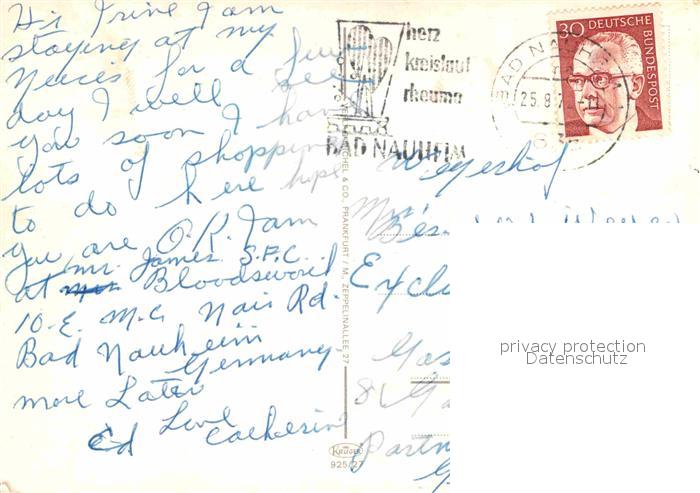 Hi Irine I am
staying at my
Neices for a few
day I well see
you soon I have
lots of shopping
to do here hope
you are O.K. I am
at Mr. James S.F.C.
Bloodsword
10-E. Mc Nair Rd.
Bad Nauheim
Germany.
more Later
Love
Ed Catherine
herz
kreislauf
rheuma
BAD NAUHEIM
BAD NAUHEIM
25.8.72
30 DEUTSCHE BUNDESPOST
& CO., FRANKFURT/M., ZEPPELINALLEE 27
KRÜGER
925/27
privacy protection
Datenschutz